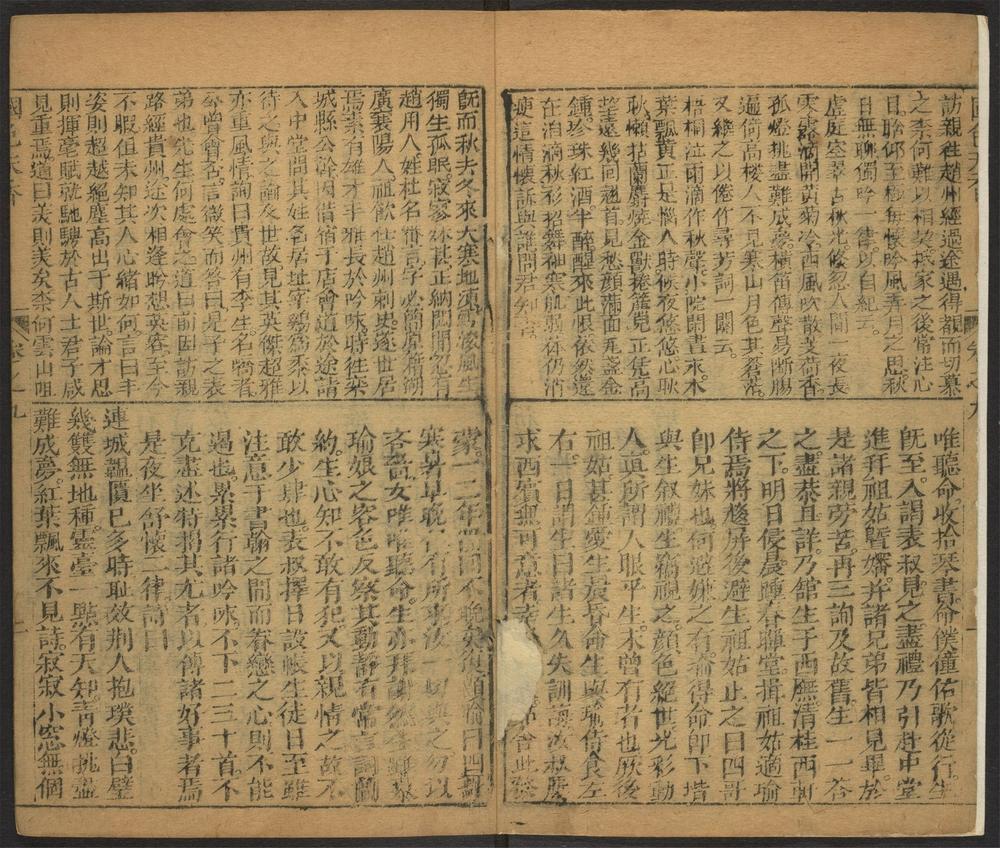 訪親往趙州經過途遇得覩而切慕
之奈何難以相契抵家之後常注心
目聆仰至極每懷吟風弄月之思秋
日無聊獨吟一律以自紀云
虛庭空翠古秋光倏忽人間一夜長
零露滴開黃菊冷西風吹散芰荷香
孤燈挑盡難成夢橫笛傳聲易斷腸
遍倚高樓人不見寒山月色其蒼蒼
又 倦作尋芳詞一闋云
梧桐泣雨滴作秋聲小院閑晝永木
葉飄黃正是惱人時候夜悠悠心耿
耿懶拈蘭麝燒金獸捲簾 正凭高
望遠幾回翹首見愁顏滿面 盞金
鍾珍珠紅酒半醉醒來此恨依然還
在 滴秋彩招舞袖寒肌弱体仍消
瘦這情懷訴與誰問君知否
唯聽命收拾琴書命僕僮佑歌從行生
既至入謁表叔見之盡禮乃引赴中堂
進拜祖姑暨嬸并諸兄弟皆相見畢於
是諸親勞苦再三詢及故舊生一一答
之盡恭且詳乃館生于西廡清桂西軒
之下明日侵晨踵春暉堂揖祖姑適瑜
侍焉將趨屏後避生祖姑止之曰四哥
即兄妹也何避嫌之有瑜得命即下堦
與生敘禮生竊視之顏色絕世光彩動
人真所謂入眼平生未曾有者也厥後
祖姑甚鍾愛生晨昏命生與瑜侍食左
右一日謂生曰諸生久失訓誨汝叔屢
求西賓無可意者幸 舍此發
既而秋去冬來大寒地凍雪濃風生
獨生孤眠寂寥 甚正納悶間忽有
趙用人姓杜名 言字必簡原籍湖
廣襄陽人祖歡仕趙州刺史遂世居
焉素有雄才手 雅長於吟咏時往來
城縣公幹因借宿于店會道於途請
入中堂問其姓名居址宰雞為黍以
待之與之論及世故見其英傑超雅
亦重風情詢曰貴州有李生名 者
亦曾會否言微笑而答曰是子之表
弟也先生何處會之道曰前因訪親
路經貴州途次相逢聆想英容至今
不暇但未知其人心緒如何言曰丰
姿則超越絕塵高出于斯世論才思
則揮毫賦就馳騁於古人士君子咸
見重焉道曰美則美矣奈何雲山咀
蒙一二年間不晚矣復顧瑜曰四哥
寒暑早晚若有所求汝一切與之勿以
吝嗇女唯唯聽命生亦拜謝然生雖慕
瑜娘之容色及察其動靜有常言詞簡
約生心知不敢有犯又以親情之故不
敢少肆也表叔擇日設帳生徒日至雖
注意于書翰之間而眷戀之心則不能
遏也累累行諸吟咏不下二三十首不
克盡述特揭其尤者以傳諸好事者焉
是夜坐舒懷二律詩曰
連城韞匱已多時恥效荊人抱璞悲白璧
幾雙無地種靈臺一點有天知青燈挑盡
難成夢紅葉飄來不見詩寂寂小窓無個